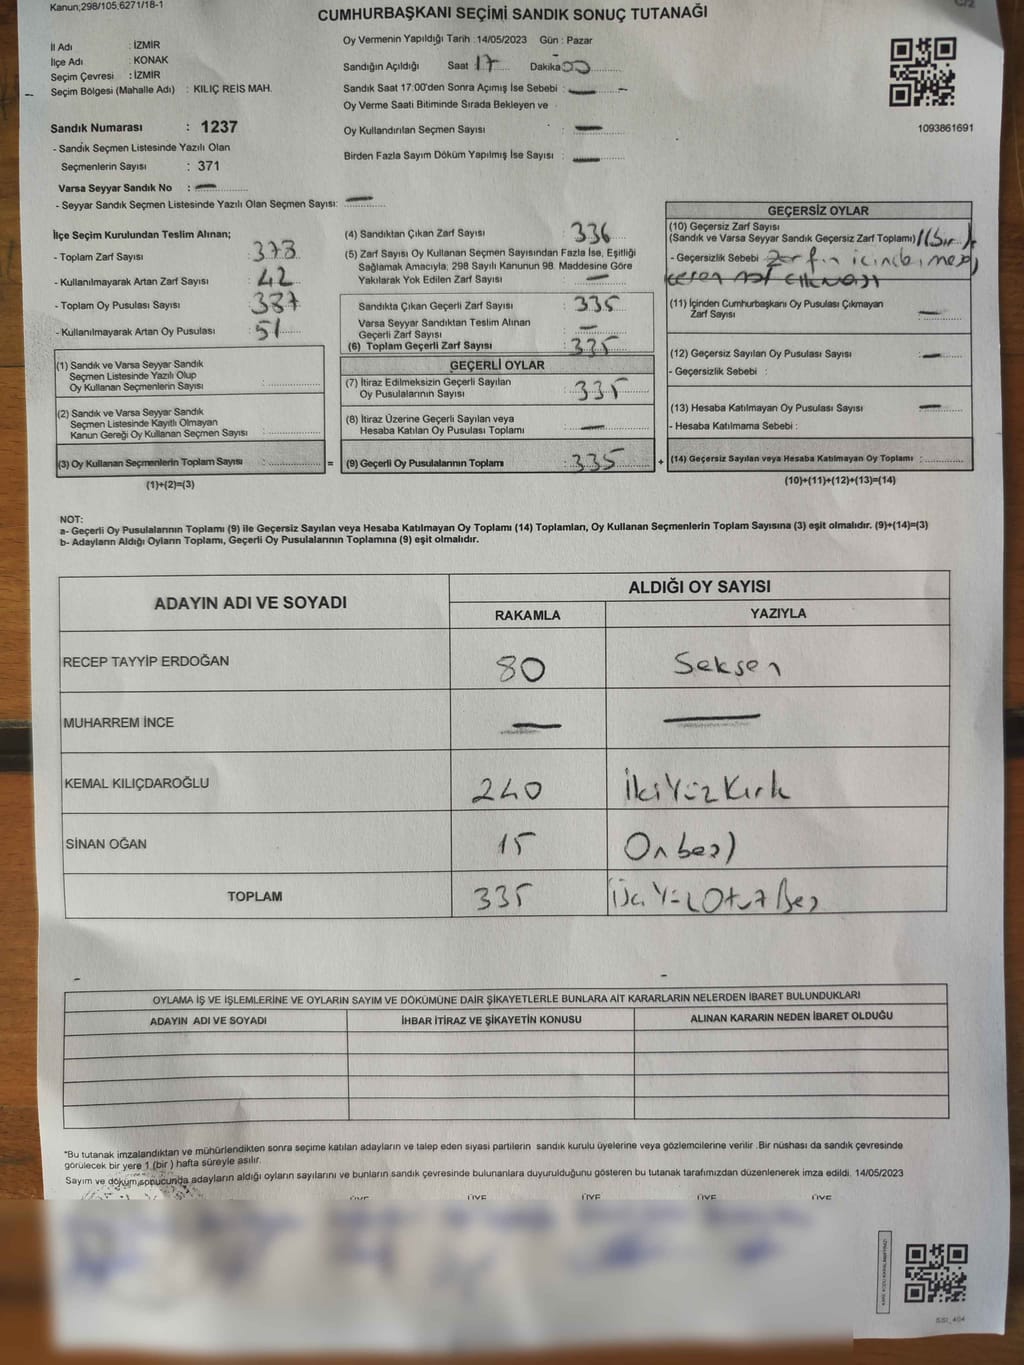 Kanun;298/105;6271/18-1
CUMHURBAŞKANI SEÇİMİ SANDIK SONUÇ TUTANAĞI
İl Adı : İZMİR
İlçe Adı : KONAK
Seçim Çevresi : İZMİR
Seçim Bölgesi (Mahalle Adı) : KILIÇ REIS MAH.
Sandık Numarası : 1237
- Sandık Seçmen Listesinde Yazılı Olan
Seçmenlerin Sayısı : 371
Varsa Seyyar Sandık No : —
- Seyyar Sandık Seçmen Listesinde Yazılı Olan Seçmen Sayısı: —
Oy Vermenin Yapıldığı Tarih : 14/05/2023 Gün : Pazar
Sandığın Açıldığı Saat : 17 Dakika 00
Sandık Saat 17:00'den Sonra Açımış İse Sebebi : —
Oy Verme Saati Bitiminde Sırada Bekleyen ve
Oy Kullandırılan Seçmen Sayısı : —
Birden Fazla Sayım Döküm Yapılmış İse Sayısı : —
1093861691
İlçe Seçim Kurulundan Teslim Alınan;
- Toplam Zarf Sayısı : 378
- Kullanılmayarak Artan Zarf Sayısı : 42
- Toplam Oy Pusulası Sayısı : 387
- Kullanılmayarak Artan Oy Pusulası : 51
(1) Sandık ve Varsa Seyyar Sandık
Seçmen Listesinde Yazılı Olup
Oy Kullanan Seçmenlerin Sayısı :
(2) Sandık ve Varsa Seyyar Sandık
Seçmen Listesinde Kayıtlı Olmayan
Kanun Gereği Oy Kullanan Seçmen Sayısı :
(3) Oy Kullanan Seçmenlerin Toplam Sayısı :
(1)+(2)=(3)
=
(4) Sandıktan Çıkan Zarf Sayısı : 336
(5) Zarf Sayısı Oy Kullanan Seçmen Sayısından Fazla İse, Eşitliği
Sağlamak Amacıyla, 298 Sayılı Kanunun 98. Maddesine Göre
Yakılarak Yok Edilen Zarf Sayısı : —
Sandıkta Çıkan Geçerli Zarf Sayısı : 335
Varsa Seyyar Sandıktan Teslim Alınan
Geçerli Zarf Sayısı : —
(6) Toplam Geçerli Zarf Sayısı : 335
GEÇERLİ OYLAR
(7) İtiraz Edilmeksizin Geçerli Sayılan
Oy Pusulalarının Sayısı : 335
(8) İtiraz Üzerine Geçerli Sayılan veya
Hesaba Katılan Oy Pusulası Toplamı : —
(9) Geçerli Oy Pusulalarının Toplamı : 335
+
GEÇERSİZ OYLAR
(10) Geçersiz Zarf Sayısı
(Sandık ve Varsa Seyyar Sandık Geçersiz Zarf Toplamı) 1 (Bir)
- Geçersizlik Sebebi : Zarfın içinde
(11) İçinden Cumhurbaşkanı Oy Pusulası Çıkmayan
Zarf Sayısı : —
(12) Geçersiz Sayılan Oy Pusulası Sayısı : —
- Geçersizlik Sebebi :
(13) Hesaba Katılmayan Oy Pusulası Sayısı : —
- Hesaba Katılmama Sebebi :
(14) Geçersiz Sayılan veya Hesaba Katılmayan Oy Toplamı :
(10)+(11)+(12)+(13)=(14)
NOT:
a- Geçerli Oy Pusulalarının Toplamı (9) ile Geçersiz Sayılan veya Hesaba Katılmayan Oy Toplamı (14) Toplamları, Oy Kullanan Seçmenlerin Toplam Sayısına (3) eşit olmalıdır. (9)+(14)=(3)
b- Adayların Aldığı Oyların Toplamı, Geçerli Oy Pusulalarının Toplamına (9) eşit olmalıdır.
ADAYIN ADI VE SOYADI
ALDIĞI OY SAYISI
RAKAMLA YAZIYLA
RECEP TAYYİP ERDOĞAN 80 Seksen
MUHARREM İNCE — —
KEMAL KILIÇDAROĞLU 240 İkiYüzKırk
SİNAN OĞAN 15 Onbeş
TOPLAM 335 ÜçYüzOtuzBeş
OYLAMA İŞ VE İŞLEMLERİNE VE OYLARIN SAYIM VE DÖKÜMÜNE DAİR ŞİKAYETLERLE BUNLARA AİT KARARLARIN NELERDEN İBARET BULUNDUKLARI
ADAYIN ADI VE SOYADI İHBAR İTİRAZ VE ŞİKAYETİN KONUSU ALINAN KARARIN NEDEN İBARET OLDUĞU
*Bu tutanak imzalandıktan ve mühürlendikten sonra seçime katılan adayların ve talep eden siyasi partilerin sandık kurulu üyelerine veya gözlemcilerine verilir .Bir nüshası da sandık çevresinde
görülecek bir yere 1 (bir ) hafta süreyle asılır.
Sayım ve döküm sonucunda adayların aldığı oyların sayılarını ve bunların sandık çevresinde bulunanlara duyurulduğunu gösteren bu tutanak tarafımızdan düzenlenerek imza edildi. 14/05/2023
ÜYE ÜYE ÜYE ÜYE ÜYE
SSI_404